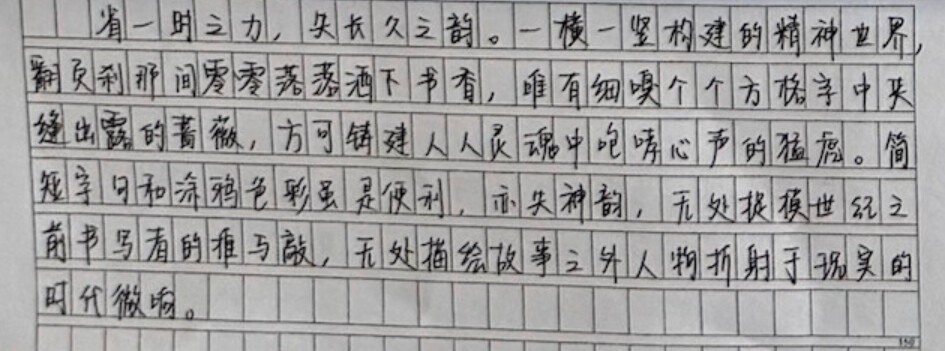 省一时之力，失长久之韵。一横一竖构建的精神世界，
翻页刹那间零零落落洒下书香，唯有细嗅个个方格字中夹
缝出露的蔷薇，方可铸建人人灵魂中咆哮心声的猛虎。简
短字句和涂鸦色彩虽是便利，亦失神韵，无处捉摸世纪之
前书写者的推与敲，无处描绘故事之外人物折射于现实的
时代微响。
150